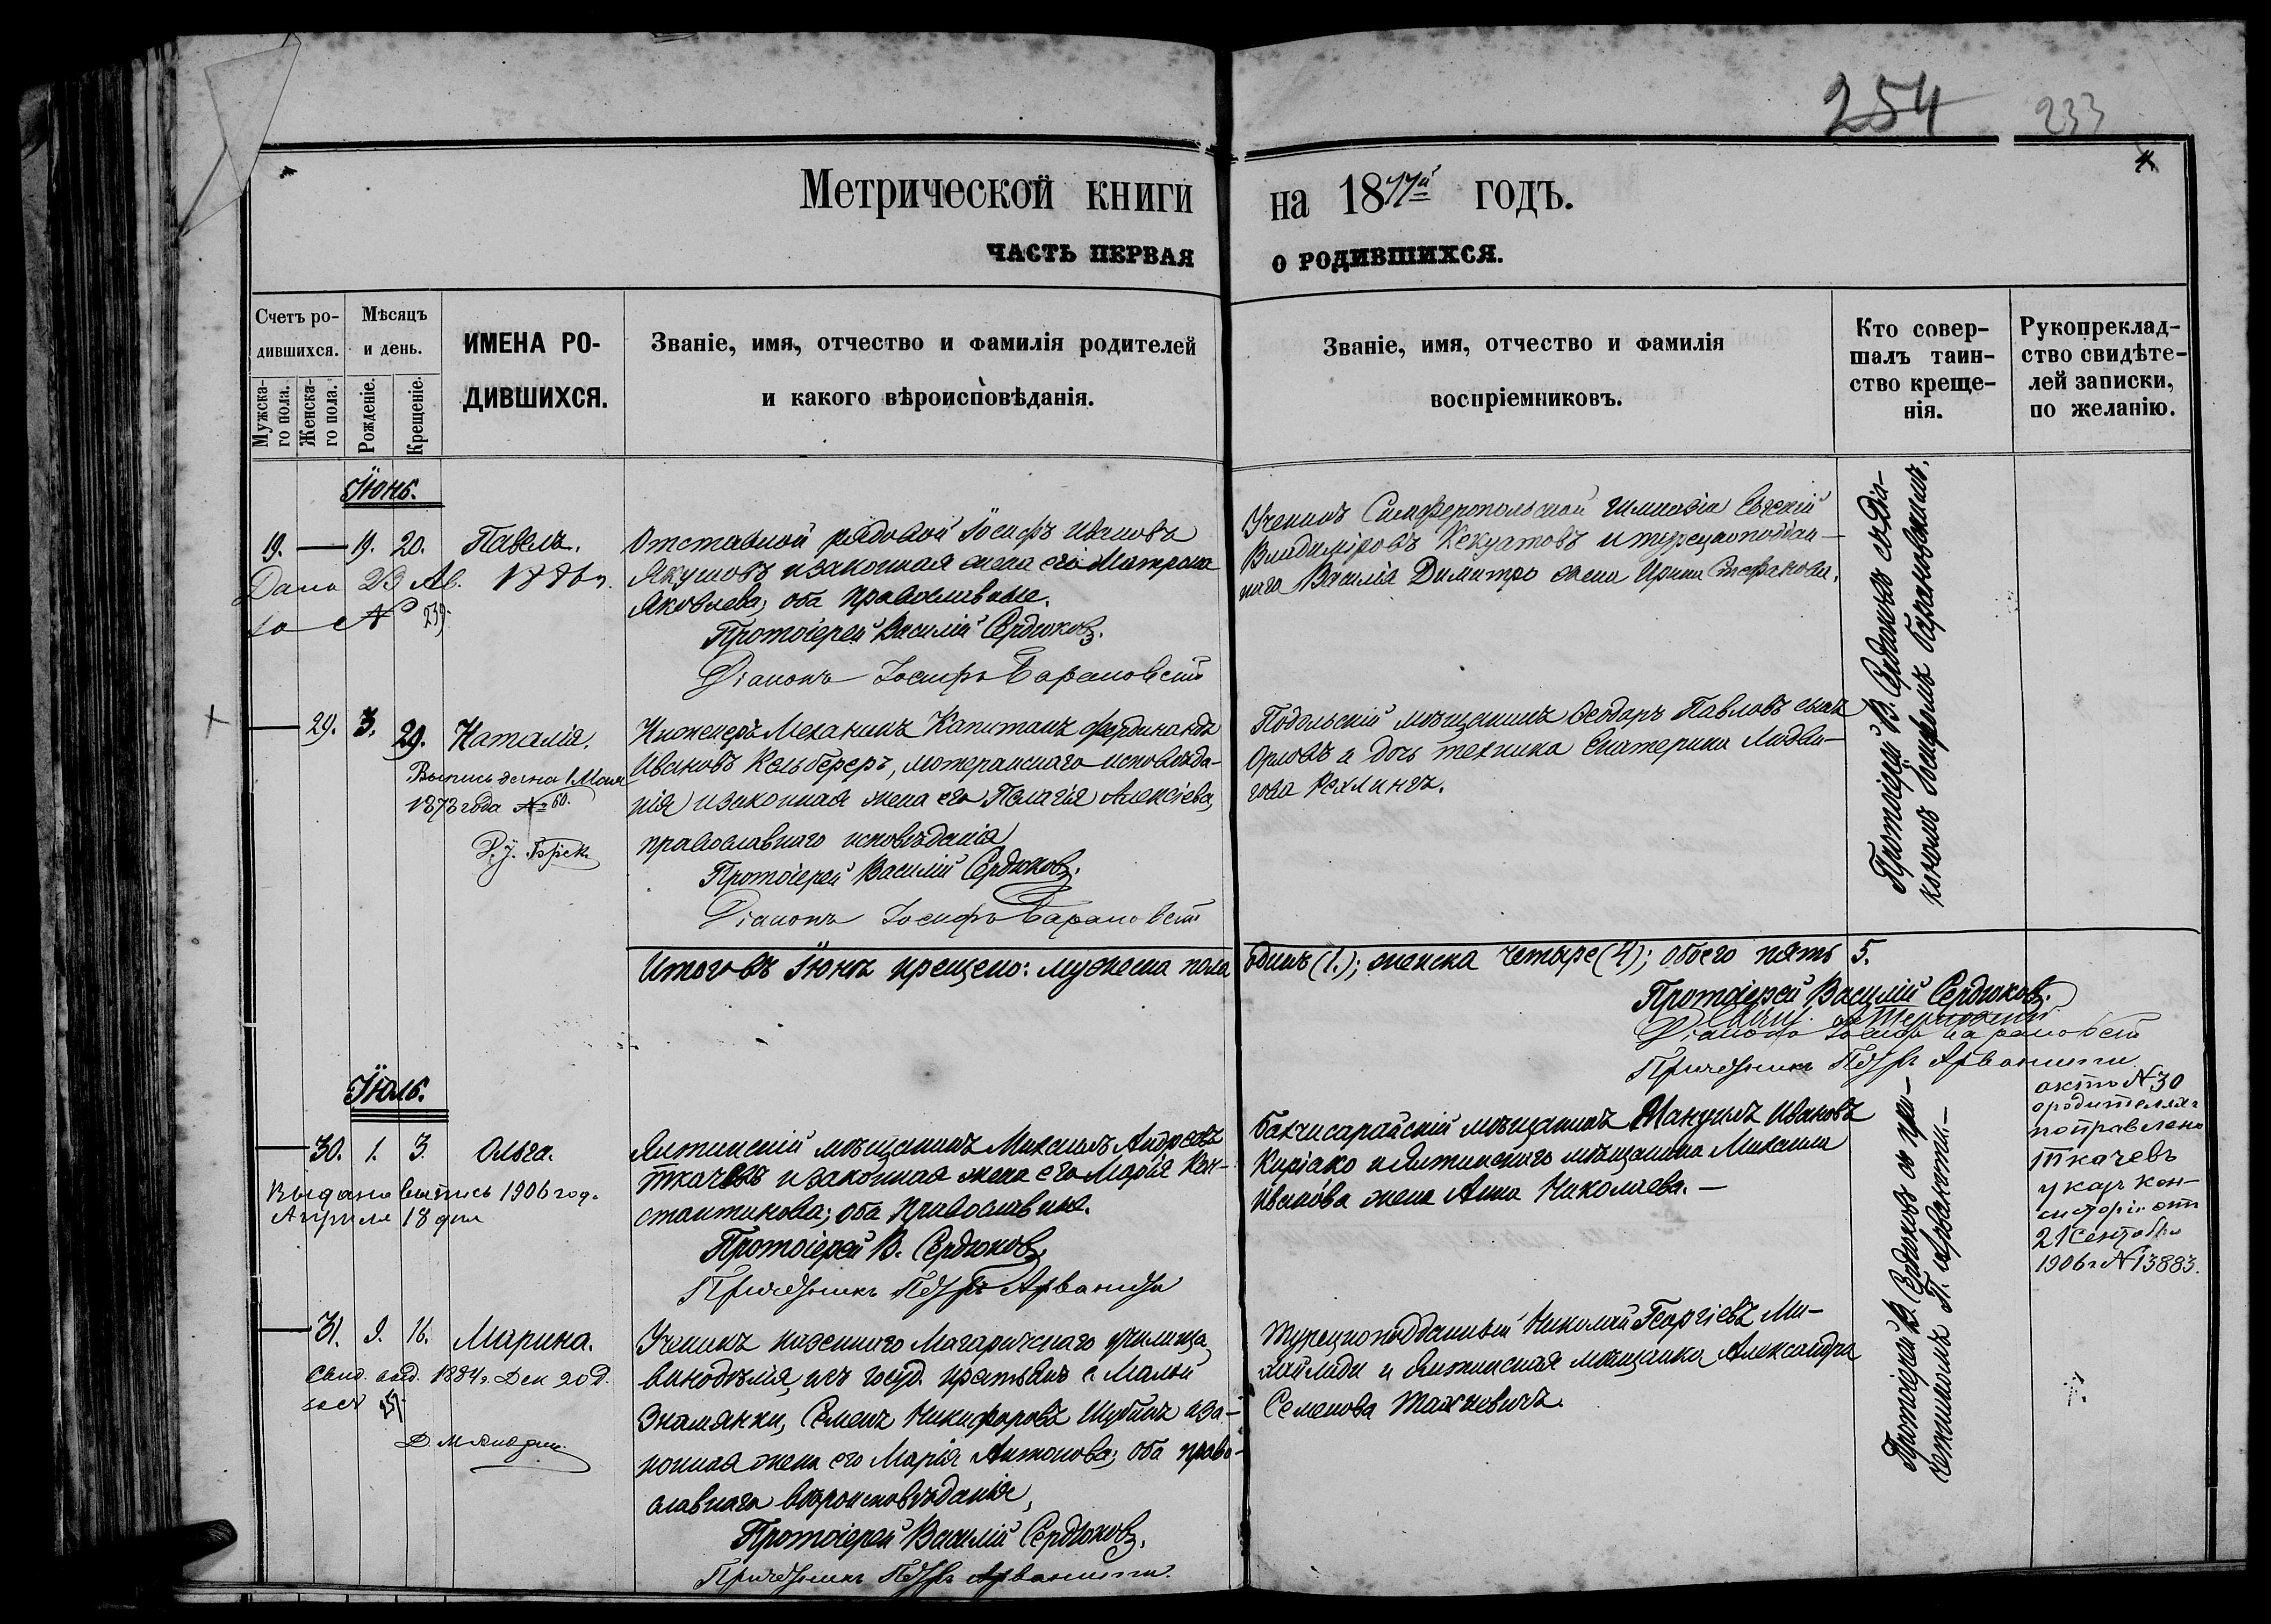 254 233
Метрической книги на 1877й годъ.
ЧАСТЬ ПЕРВАЯ О РОДИВШИХСЯ.
Счетъ родившихся.
Мужска-
го пола.
Женска-
го пола.
Мѣсяцъ
и день.
Рожденіе.
Крещеніе.
ИМЕНА РО-
ДИВШИХСЯ.
Званіе, имя, отчество и фамилія родителей
и какого вѣроисповѣданія.
Званіе, имя, отчество и фамилія
воспріемниковъ.
Кто совер-
шалъ таин-
ство креще-
нія.
Рукоприклад-
ство свидѣте-
лей записки,
по желанію.
Іюнь.
19. — 19. 20. Павелъ.
Дана 23 Ав. 1886 г.
за № 239.
Отставной рядовой Іосифъ Ивановъ
Якушовъ и законная жена его Матрона
Яковлева, оба православные.
Протоіерей Василій Сердюковъ.
Діаконъ Іосифъ Барановскій
Ученикъ Симферопольской гимназіи Евгеній
Владиміровъ Кекуатовъ и турецкоподдан-
наго Василія Димитро жена Ирина Стефанова.
Протоіерей В. Сердюковъ съ діа-
кономъ Іосифомъ Барановскимъ.
— 29. 3. 29. Наталія.
Выпись дана 1 Мая
187 года № 60.
Инженеръ Механикъ Капитанъ Фердинандъ
Ивановъ Кельберер, лютеранскаго исповѣда-
нія и законная жена его Пелагія Алексіева,
православнаго исповѣданія
Протоіерей Василій Сердюковъ.
Діаконъ Іосифъ Барановскій
Подольскій мѣщанинъ Ѳеодоръ Павловъ сынъ
Орловъ и дочь техника Екатерина Людви-
гова Рехлингъ.
Итого въ Іюнѣ крещено: мужеска пола одинъ (1.); женска четыре (4); обоего пять 5.
Протоіерей Василій Сердюковъ.
Діаконъ Іосифъ Барановскій
Причетникъ Петръ Арванити
Іюль.
— 30. 1. 3. Ольга.
Выдана выпись 1906 год.
Апрѣля 18 дня
Ялтинскій мѣщанинъ Михаилъ Андреевъ
Ткачевъ и законная жена его Марія Кон-
стантинова; оба православные.
Протоіерей В. Сердюковъ.
Причетникъ Петръ Арванити
Бахчисарайскій мѣщанинъ Мануилъ Ивановъ
Киріако и Ялтинскаго мѣщанина Михаила
Иванова жена Анна Николаева. —
Протоіерей В. Сердюковъ съ при-
четникомъ П. Арванити. —
актъ № 30
о родителяхъ
поправлено
Ткачевъ
указ кон-
систоріи отъ
21 Сентября
1906 г № 13883.
— 31. 9. 16. Марина.
Свид. выд. 1884 г. Дек 20 д.
за № 251
Ученикъ казеннаго Магарачскаго училища
винодѣлія, изъ госуд. крестьянъ с. Малой
Знамянки, Семенъ Никифоровъ Шубинъ и за-
конная жена его Марія Антонова; оба право-
славнаго вѣроисповѣданія,
Протоіерей Василій Сердюковъ.
Причетникъ Петръ Арванити.
Турецкоподданный Николай Георгіевъ Ми-
хайлиди и Ялтинская мѣщанка Александра
Семенова